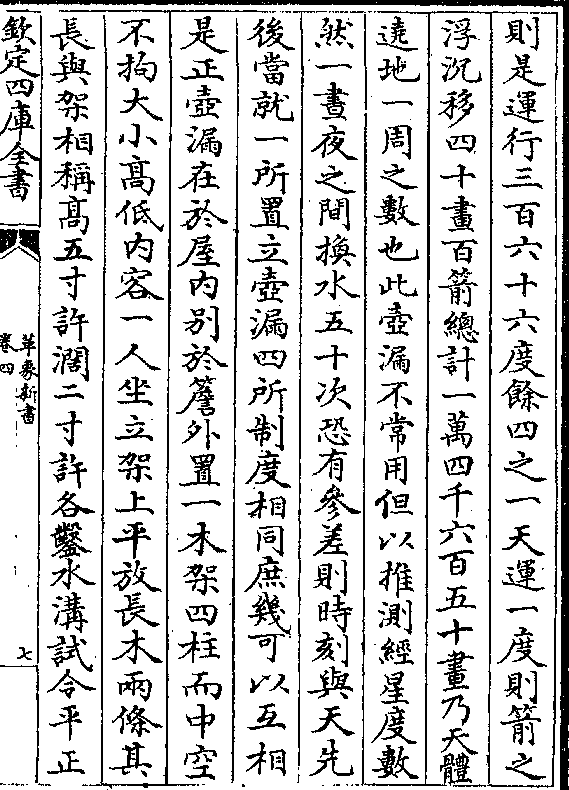 則是運行三百六十六度餘四之一天運一度則箭之
浮沉移四十畫百箭總計一萬四千六百五十畫乃天體
遶地一周之數也此壺漏不常用但以推測經星度數
然一晝夜之間換水五十次恐有參差則時刻與天先
後當就一所置立壺漏四所制度相同庶幾可以互相
是正壺漏在於屋内别於簷外置一木架四柱而中空
不拘大小髙低内容一人坐立架上平放長木兩條其
長與架相稱髙五寸許濶二寸許各鑿水溝試令平正
欽定四庫全書
革象新書
卷四
七